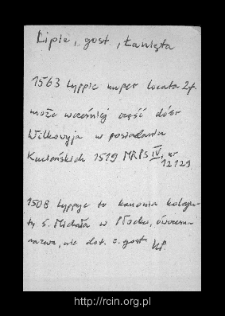 Lipie, gost, Ławięta
1563 Lyppie nuper locata 2 f.
może wcześniej część dóbr
Wilkowyja w posiadaniu
Kucieńskich 1519 MRPS IV, nr
12121
1508 Lyppye to kanonia kolegiaty
ś. Michała w Płocku,
nazwa, nie dot. z. gost KP
http://rcin.org.pl